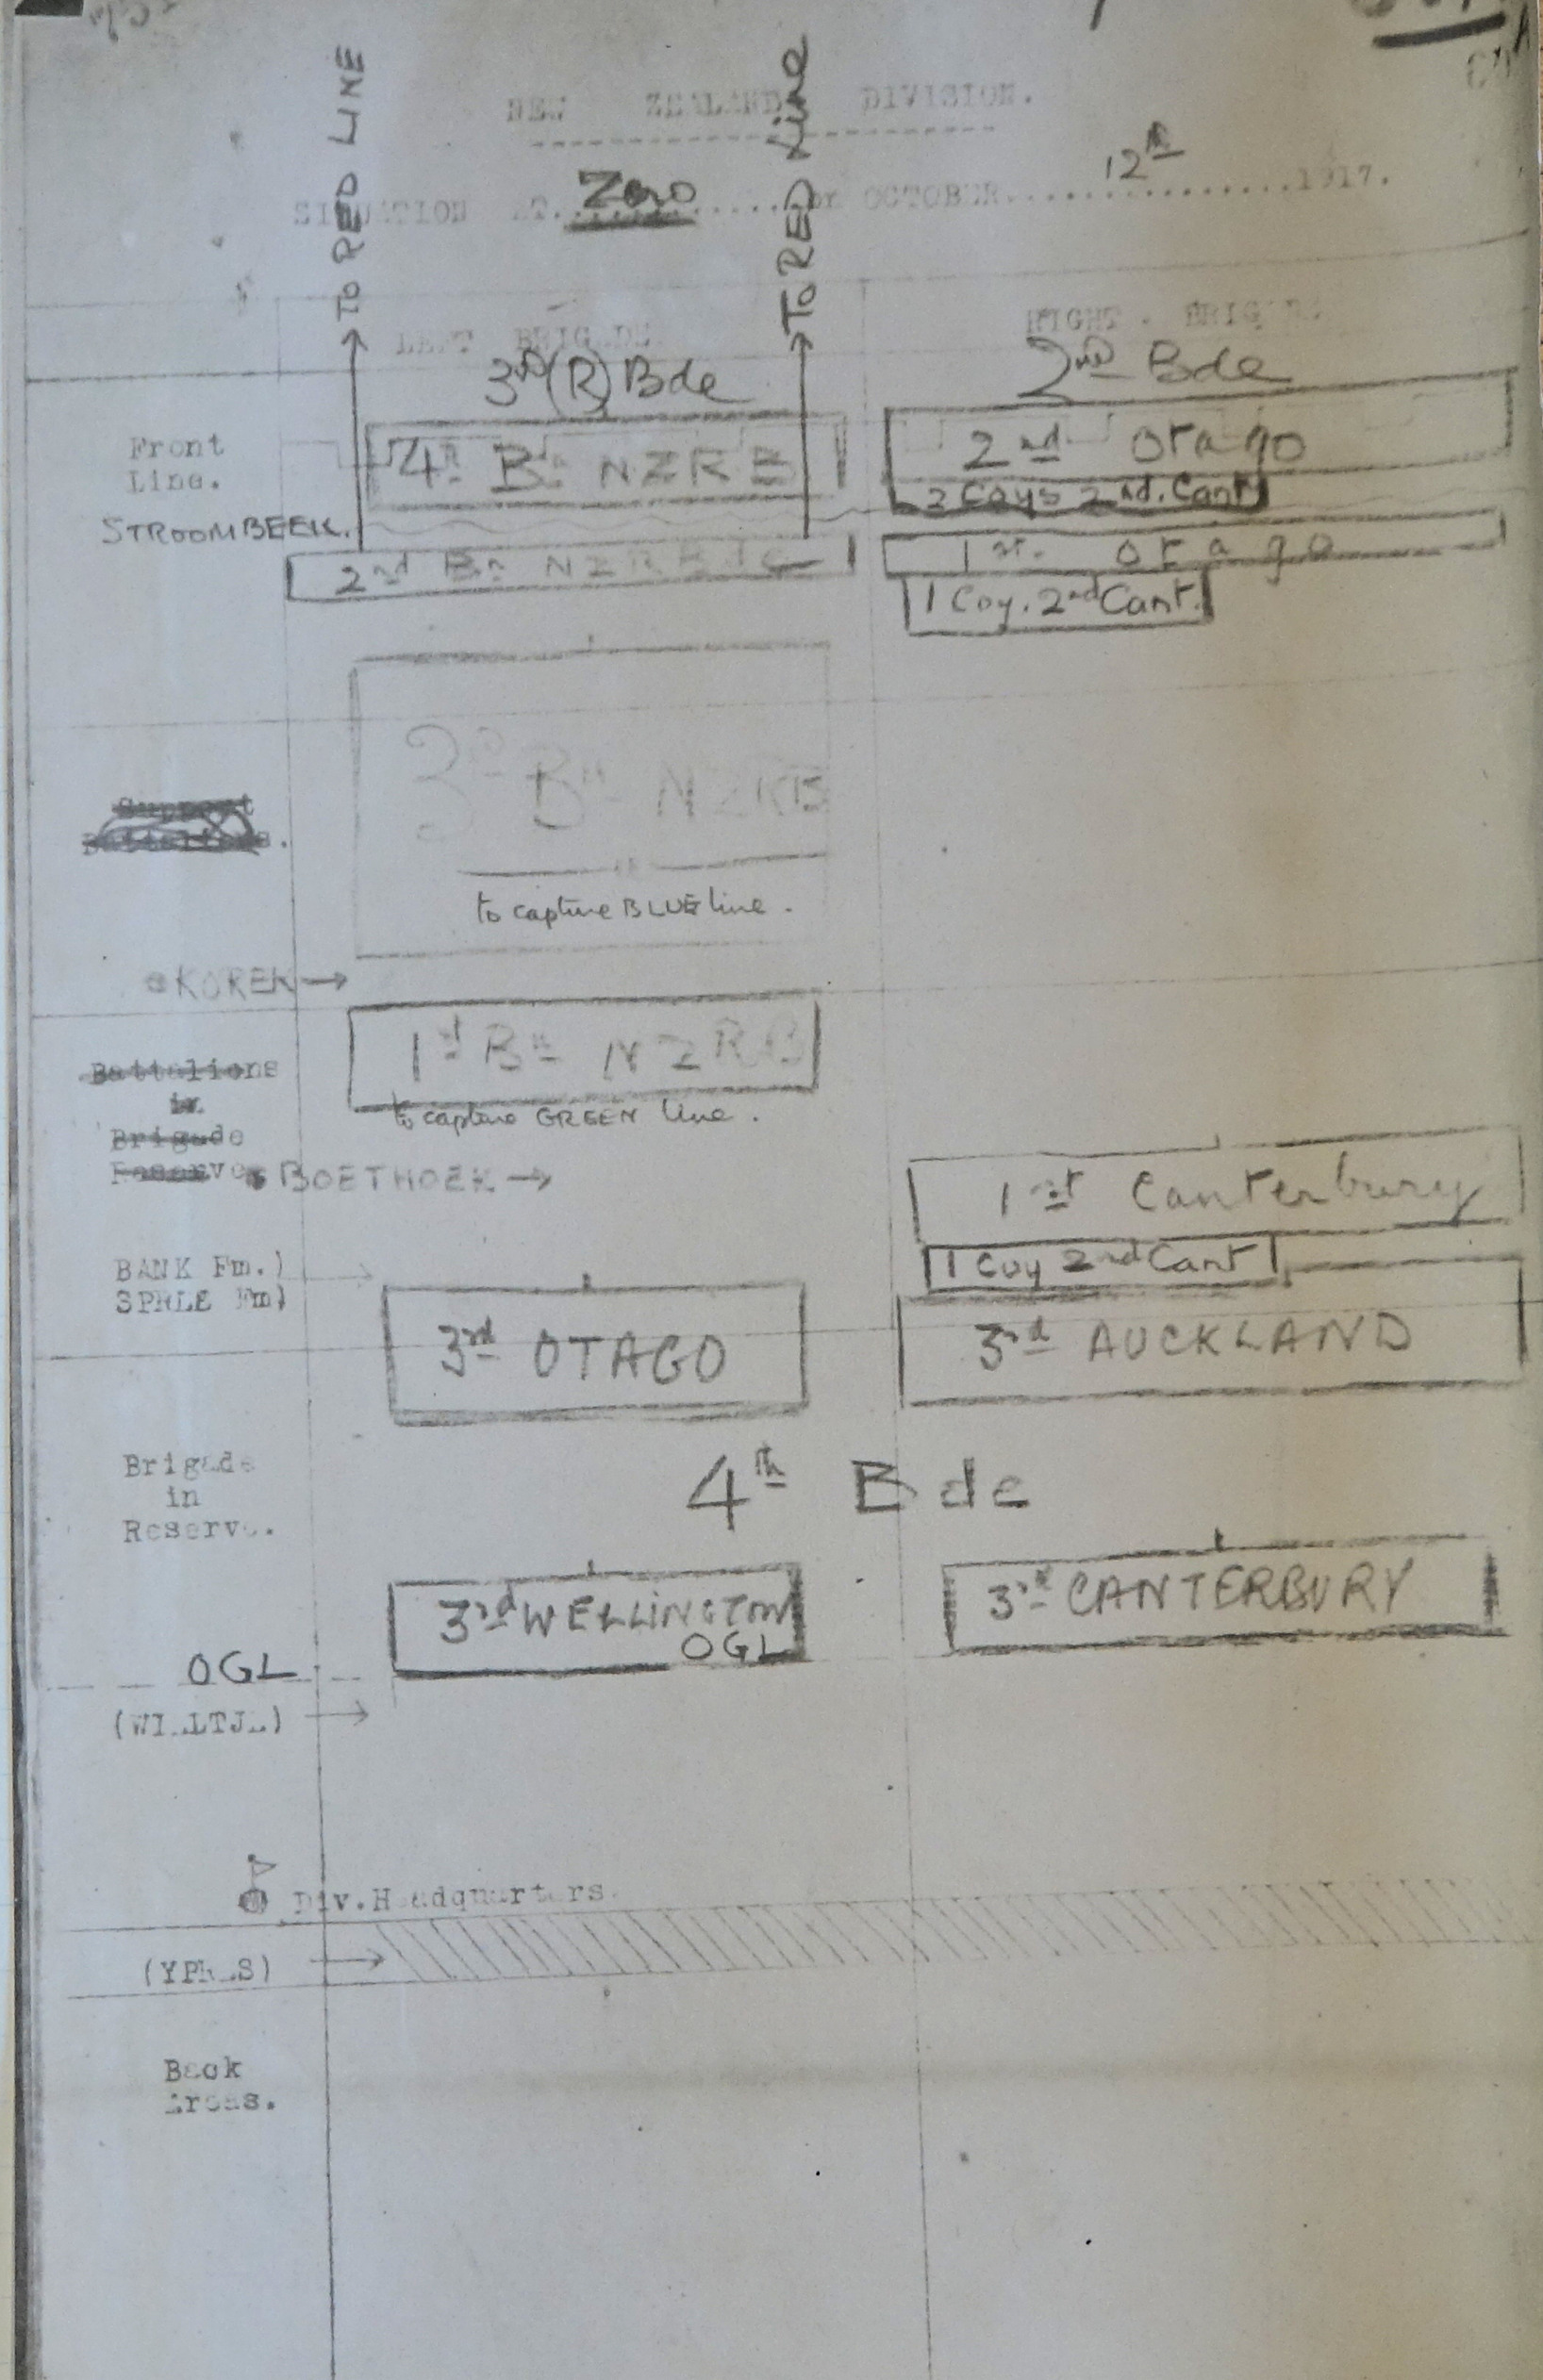 TO RED LINE
TO RED Line
NEW ZEALAND DIVISION.
SITUATION AT....Zero.....on OCTOBER....12th....1917.
LEFT BRIGADE
RIGHT BRIGADE
3rd (R) Bde
2nd Bde
Front
Line.
4th Bn NZRB
2nd Otago
2 Coys 2nd. Cant
STROOMBEEK.
2nd Bn NZRB
1st. Otago
1 Coy. 2nd Cant.
3rd Bn NZRB
Support
Battalions.
to capture BLUE line.
KOREK →
1st Bn NZRB
to capture GREEN line.
Battalions
in
Brigade
Reserve
BOETHOEK →
1st Canterbury
1 Coy 2nd Cant
BANK Fm.)
SPREE Fm)
3rd OTAGO
3rd AUCKLAND
Brigade
in
Reserve.
4th Bde
3rd WELLINGTON
OGL
3rd CANTERBURY
OGL
(WIELTJE) →
Div. Headquarters.
(YPRES) →
Back
Areas.